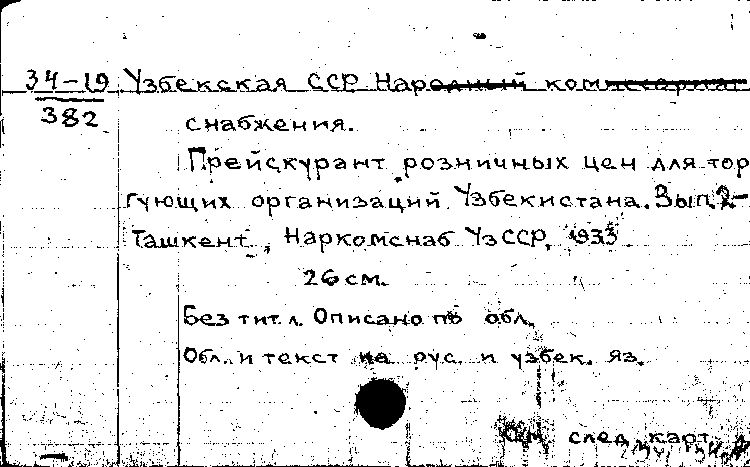 34-19 Узбекская ССР. Народный комиссариат
382 снабжения.
Прейскурант розничных цен для тор
гующих организаций Узбекистана. Вып. 2-
Ташкент, Наркомснаб УзССР, 1933
26 см.
Без тит. л. Описано по обл.
Обл. и текст на рус. и узбек. яз.
См. след. карт.